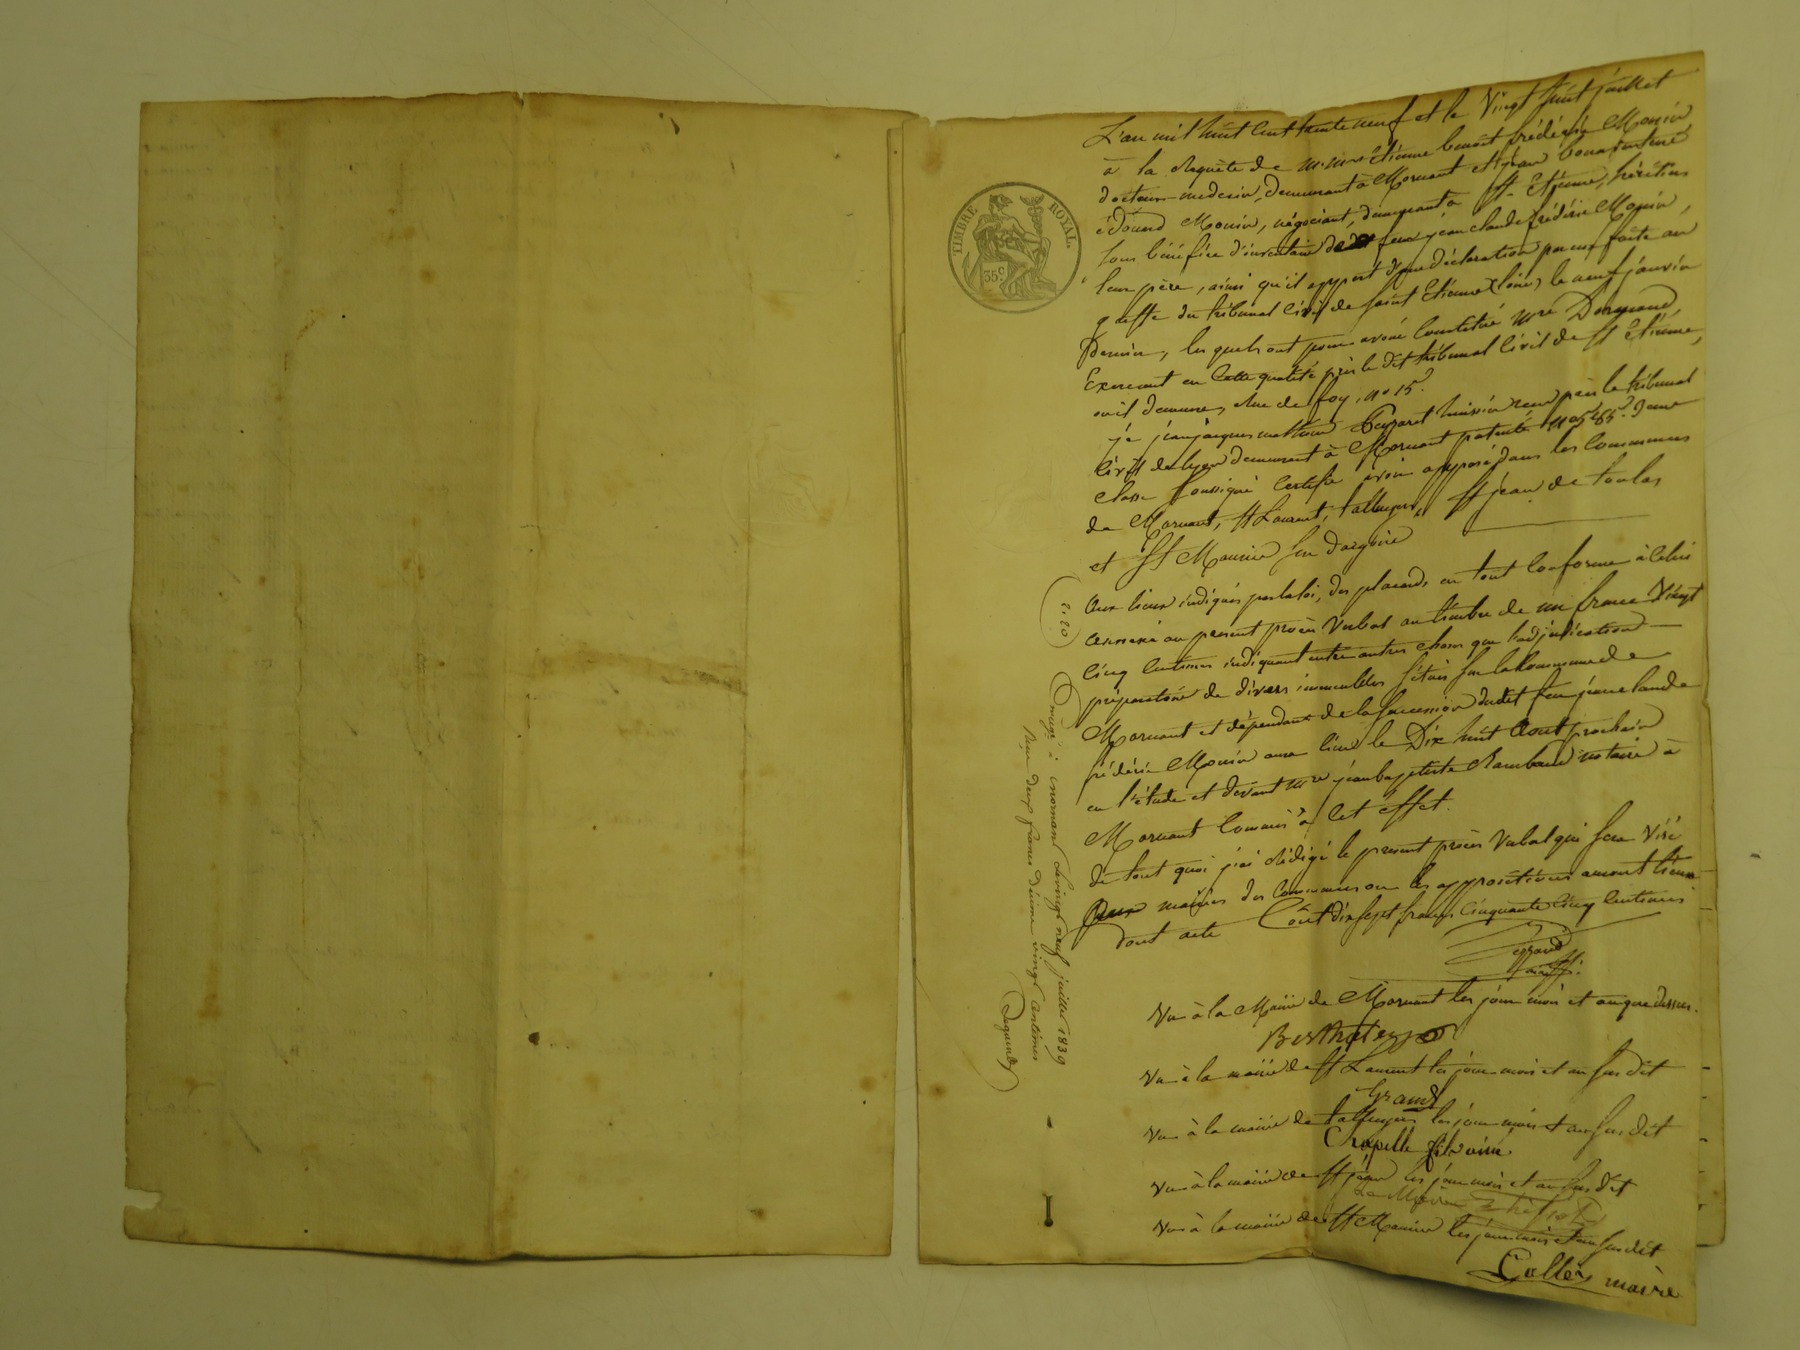 L'an mil huit cent trente neuf et le Vingt huit juillet
à la Requête de M.M.rs Etienne benoit frédéric Monin
docteur-medecin, demeurant à Mornant et jean bonaventure
édouard Monin, négociant, demeurant à St Etienne, héritiers
sous bénéfice d'inventaire de feu jean claude frédéric Monin,
leur père, ainsi qu'il appert d'une déclaration par eux faite au
greffe du tribunal Civil de Saint Etienne (loire) le neuf janvier
Dernier, les quels ont pour avoué Constitué Mre
Exercant en Cette qualité près le dit tribunal Civil de St Etienne,
ou il demeure, Rue de foy, no 15.
je jean jacques mathieu Huissier Reçu près le tribunal
Civil de lyon demeurant à Mornant patenté no 55.
Classe Soussigné Certifie avoir apposé dans les Communes
de Mornant, St Laurent, taluyers, St jean de toulas
et St Maurice sur dargoire
Aux lieux indiqués par la loi, des placards en tout Conforme à Celui
annexé au present procès Verbal au timbre de un franc Vingt
Cinq Centimes indiquant entre autres choses que l'adjudication
préparatoire de divers immeubles situés sur la Commune de
Mornant et dépendant de la succession dudit feu jean claude
frédéric Monin aura lieu le Dix huit Aout prochain
en l'étude et devant Mre jean baptiste Rambaud notaire à
Mornant Commis à Cet effet.
de tout quoi j'ai Rédigé le present procès Verbal qui sera Visé
par maires des Communes ou les appositions auront lieu
dont acte Coût dix sept francs Cinquante Cinq Centimes
Vu à la Mairie de Mornant les jour mois et an que dessus.
Vu à la mairie de St Laurent les jour mois et an susdit
Grand
Vu à la mairie de taluyers les jour mois et an susdit
Chapelle fils ainé
Vu à la mairie de St jean les jour mois et an susdit
Le Maire
Vu à la mairie de St Maurice les jour mois et an susdit
Collet maire
TIMBRE ROYAL.
35 c
2.20
Enregé à mornant le vingt neuf juillet 1839
Reçu deux francs décime vingt centimes